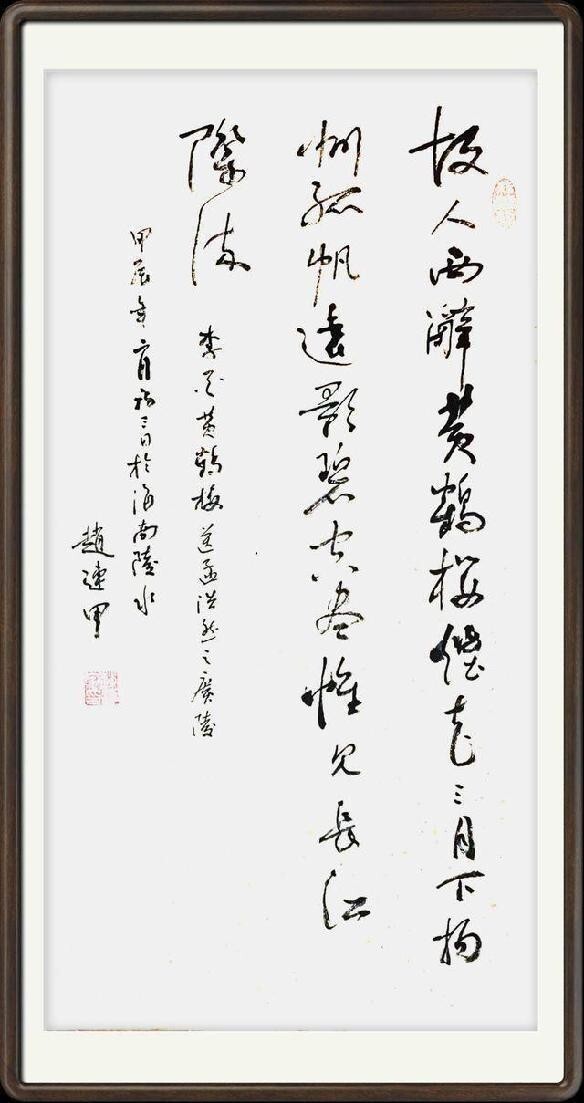 故人西辭黄鶴楼煙花三月下揚
州孤帆遠影碧空盡惟見長江
際流
李白黄鶴楼送孟浩然之廣陵
甲辰年二月初三日於海南陵水
趙連甲